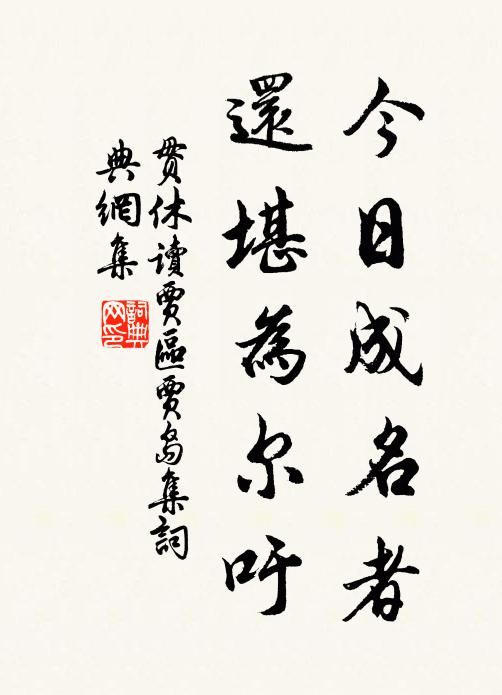 今日成名者
還堪為尔吁
贯休讀賈區賈島集詞
典網集
詞典網印